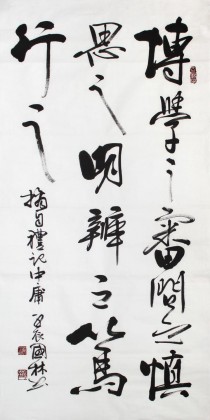 博學之審問之慎
思之明辨之篤
行之
摘自禮記中庸
國林